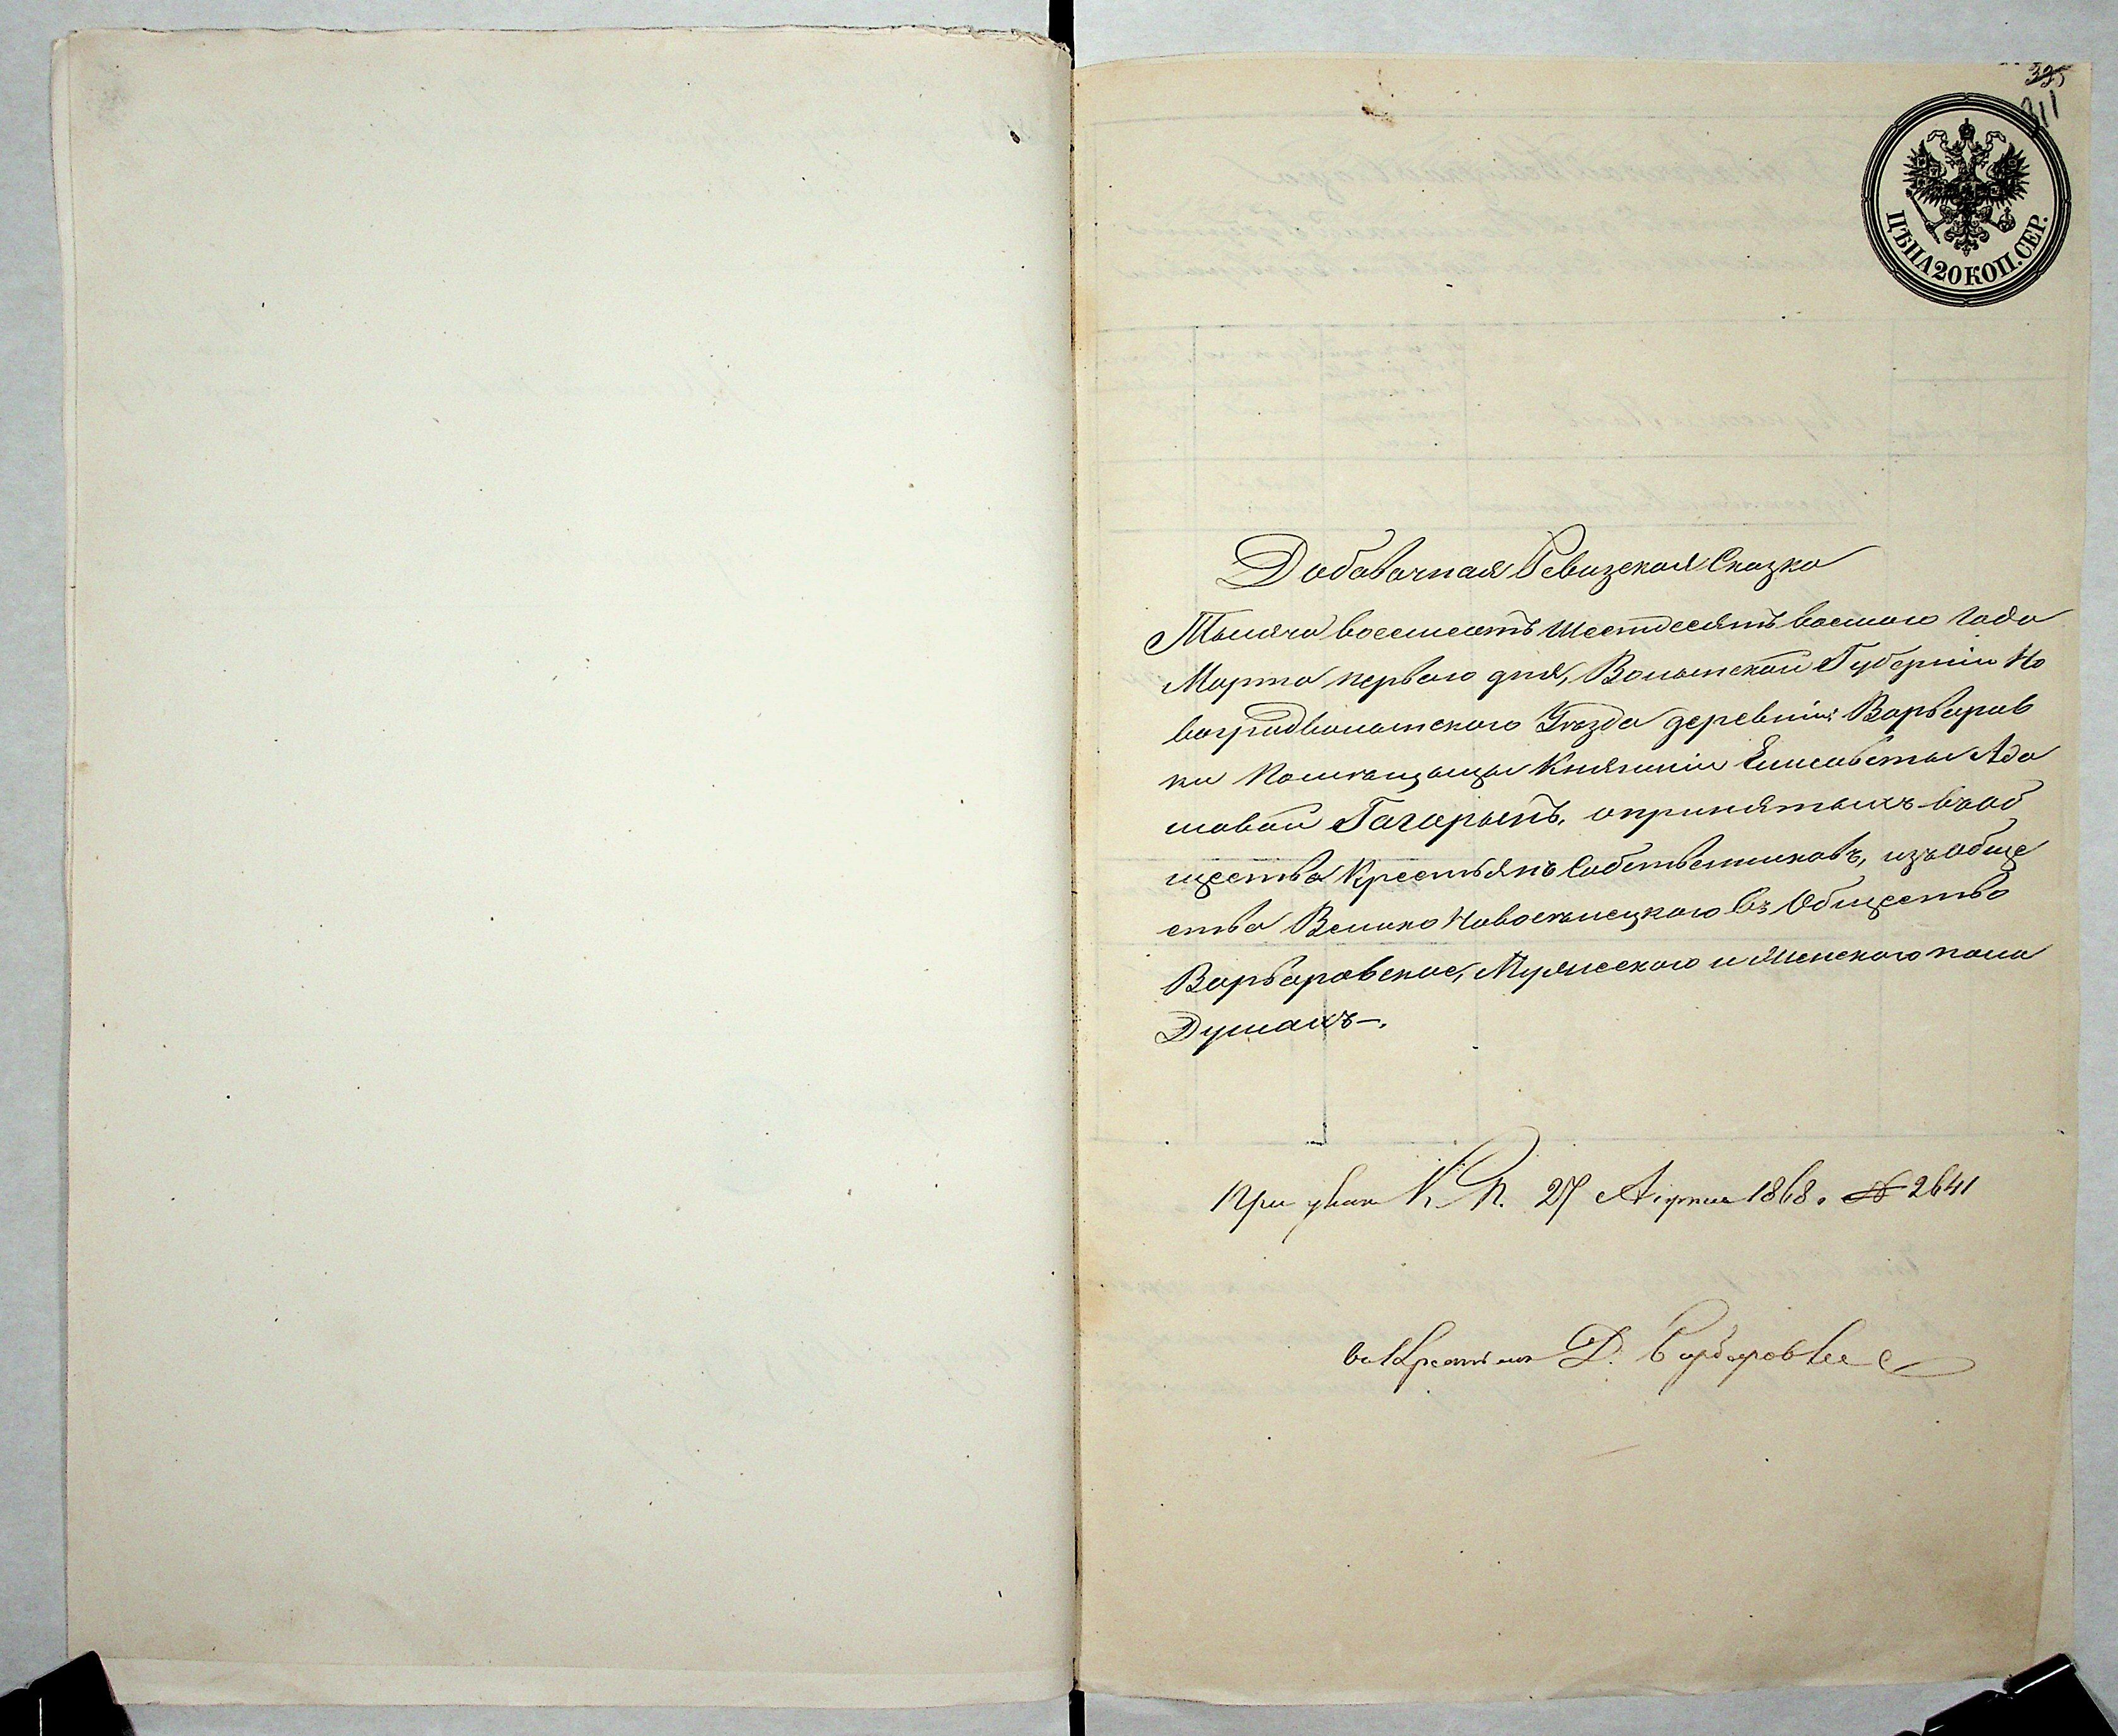 325
311
ЦѢНА 20 КОП. СЕР.
Добавочная Ревизская Сказка
Тысяча восемсотъ шестдесятъ восмого года
Марта первого дня, Волынской Губерніи Но
воградволынского Уѣзда деревни Варваров
ки Помѣщицы Княгини Елисаветы Ада
мовой Гагарынъ, о принятыхъ въ об
щество Крестьянъ Собственниковъ, изъ обще
ства Велико Новоселецкого въ Общество
Варваровское, Мужеского и Женского пола
Душахъ—.
При указе К. П. 27 Апреля 1868. № 2641
Д. Варваровке